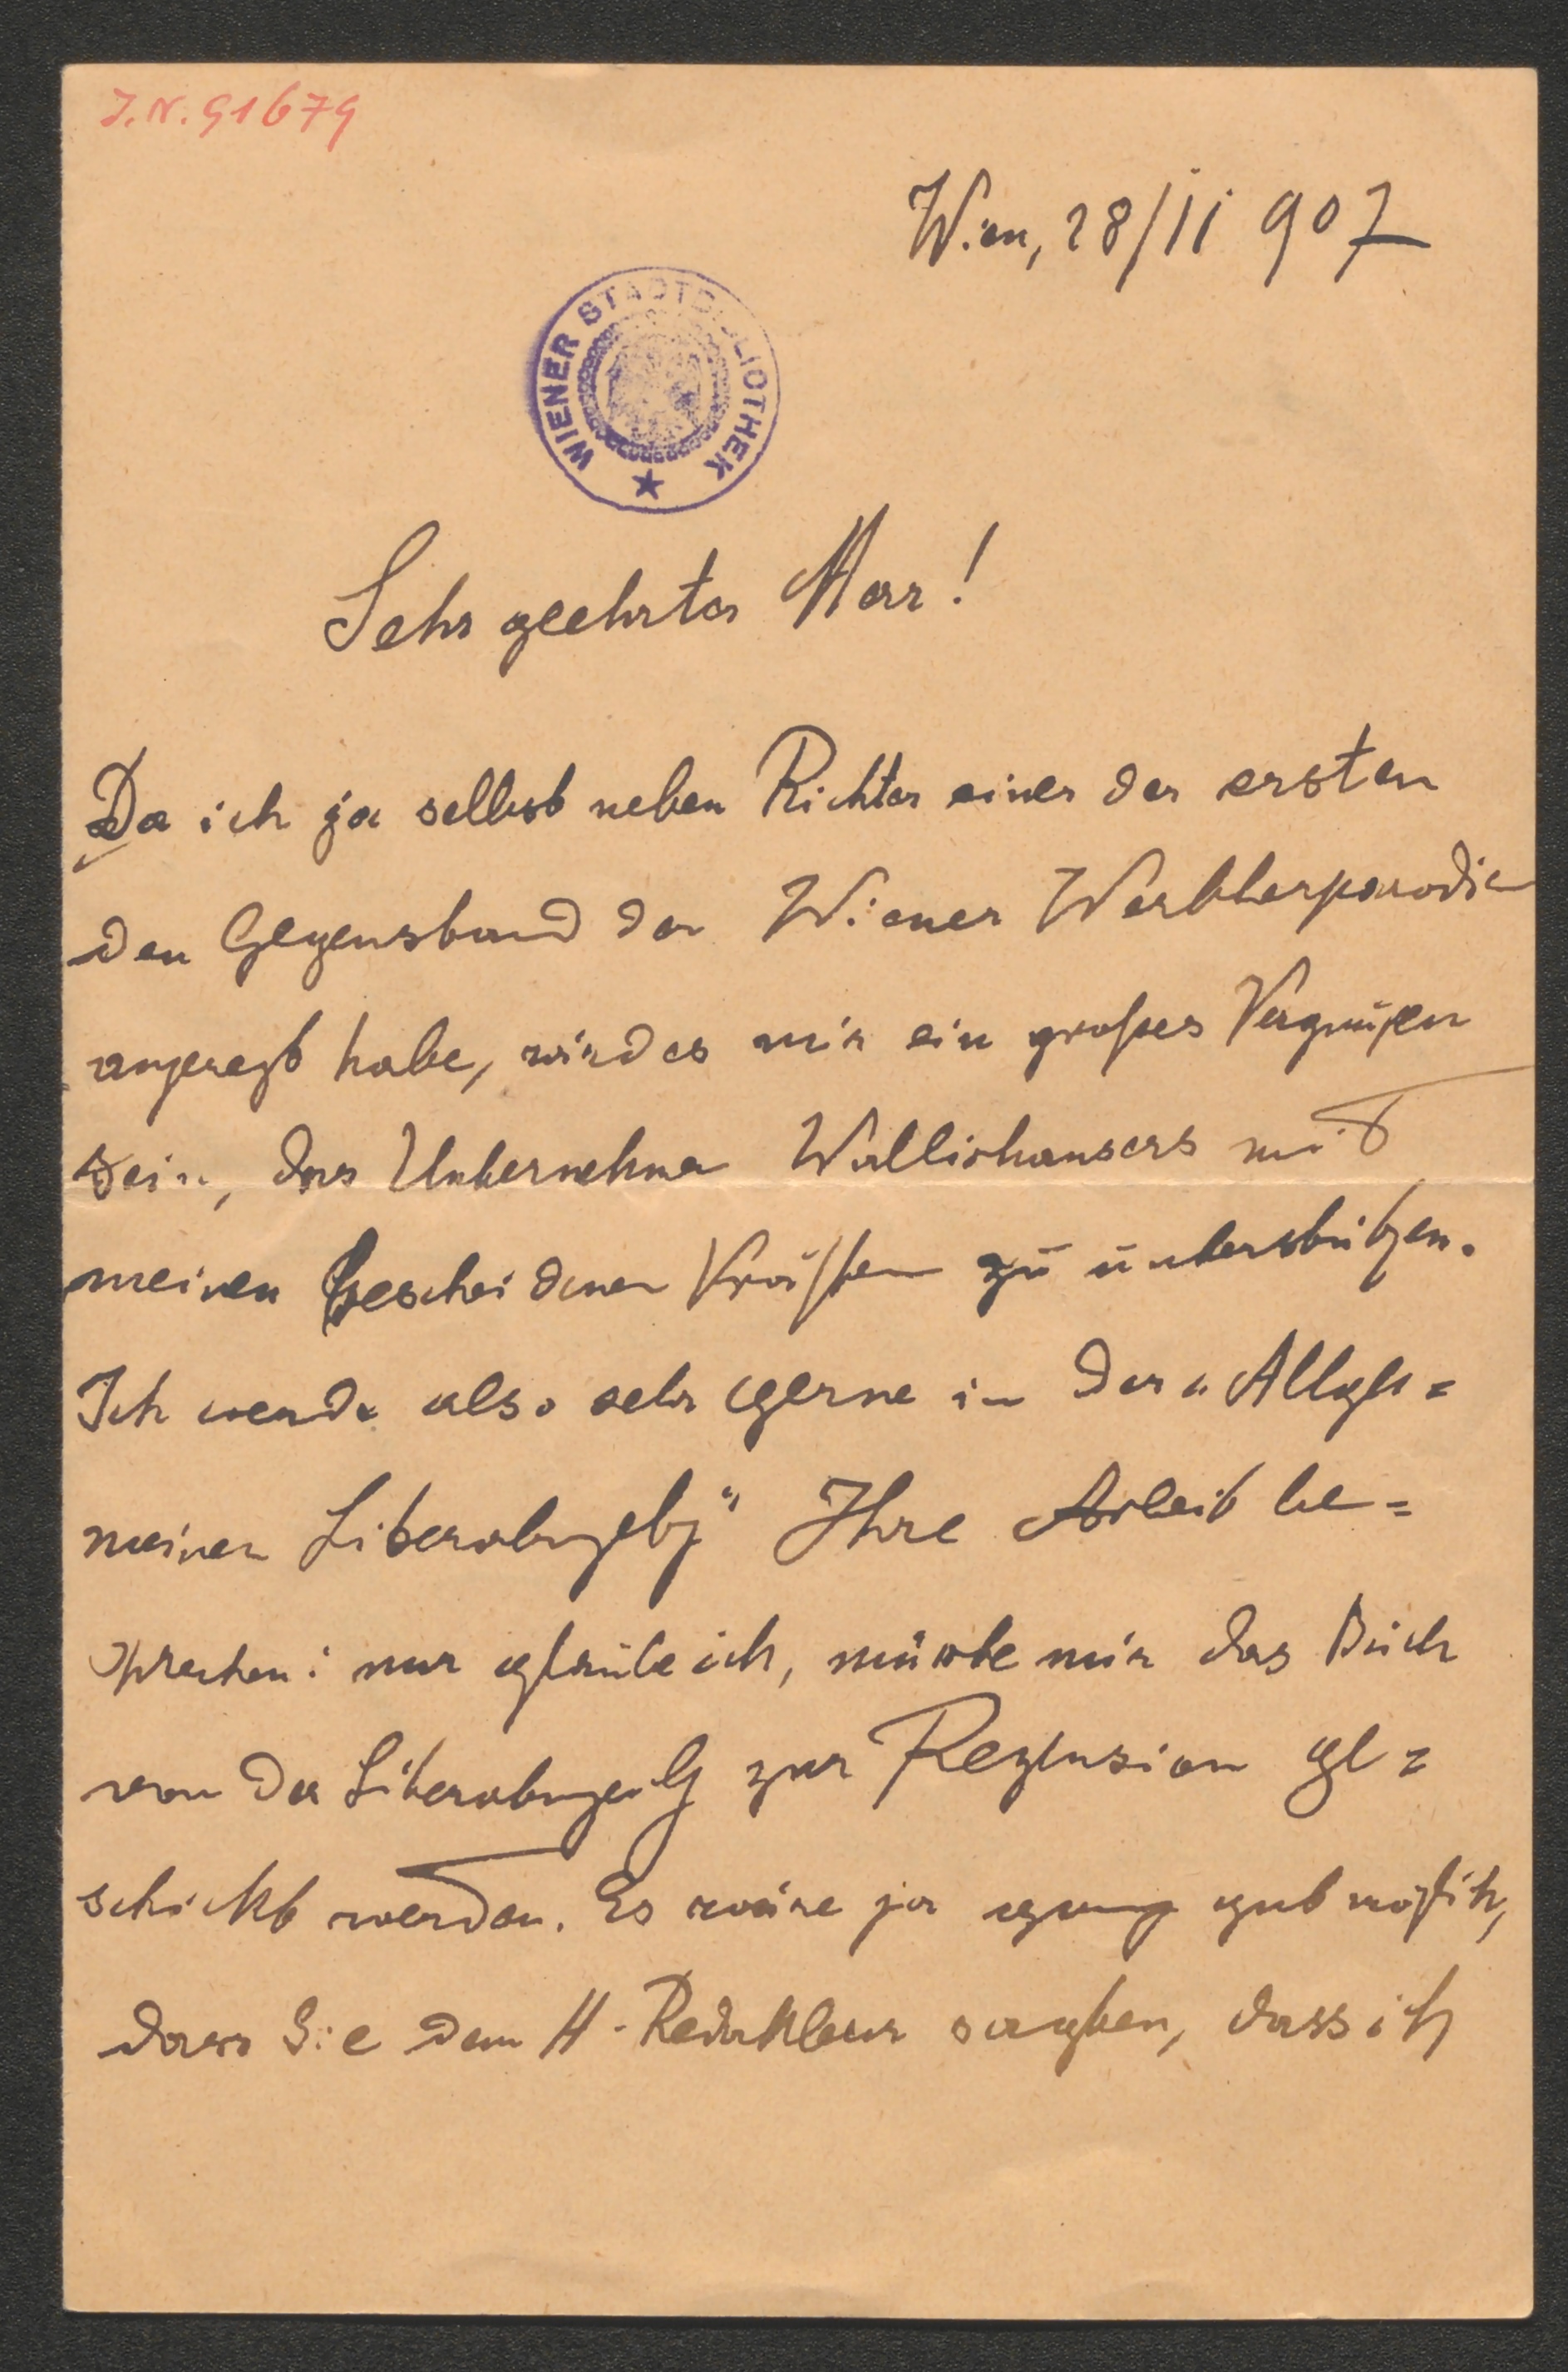 J.N. 91679
Wien, 28/II 907
WIENER STADTBIBLIOTHEK
Sehr geehrter Herr!
Da ich ja selbst neben Richter einer der ersten
den Gegenstand der Wiener Wertherparodie
angeregt habe, wird es mir ein großes Vergnügen
sein, das Unternehmen Wallishaussers mit
meinen bescheidenen Kräften zu unterstützen.
Ich werde also sehr gerne in der „Allge=
meinen Literaturztg“ Ihre Arbeit be=
sprechen: nur glaube ich, müsste mir das Buch
von der Literaturzeitg zur Rezension ge=
schickt werden. Es wäre ja ganz gut möglich,
dass Sie dem H. Redakteur sagten, dass ich